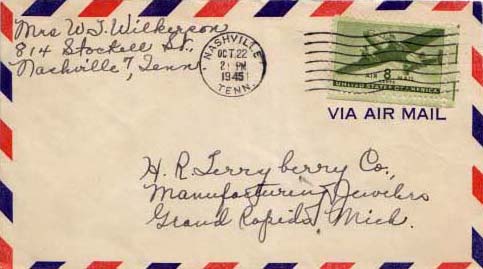 Mrs W. J. Wilkerson
814 Stockell St.,
Nashville 7, Tenn.
NASHVILLE
OCT. 22
2 PM
1945
TENN.
AIR 8¢ MAIL
UNITED STATES OF AMERICA
VIA AIR MAIL
H. R. Terryberry Co.,
Manufacturing Jewelers
Grand Rapids, Mich.